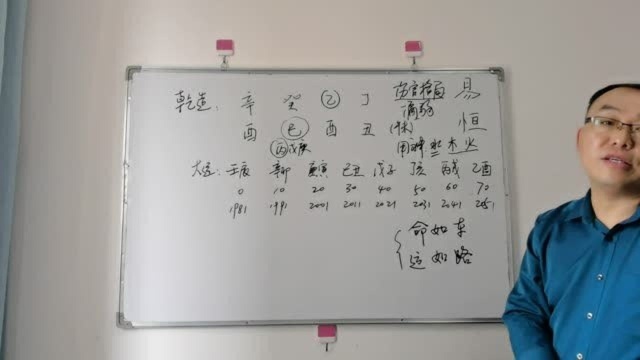 乾造: 辛 癸 乙 丁 伤官格局 易
偏弱
酉 巳 酉 丑 恒
丙戊庚 用神 水木火
大运: 壬辰 辛卯 庚寅 己丑 戊子 丁亥 丙戌 乙酉
0 10 20 30 40 50 60 70
1981 1991 2001 2011 2021 2031 2041 2051
命如车
运如路